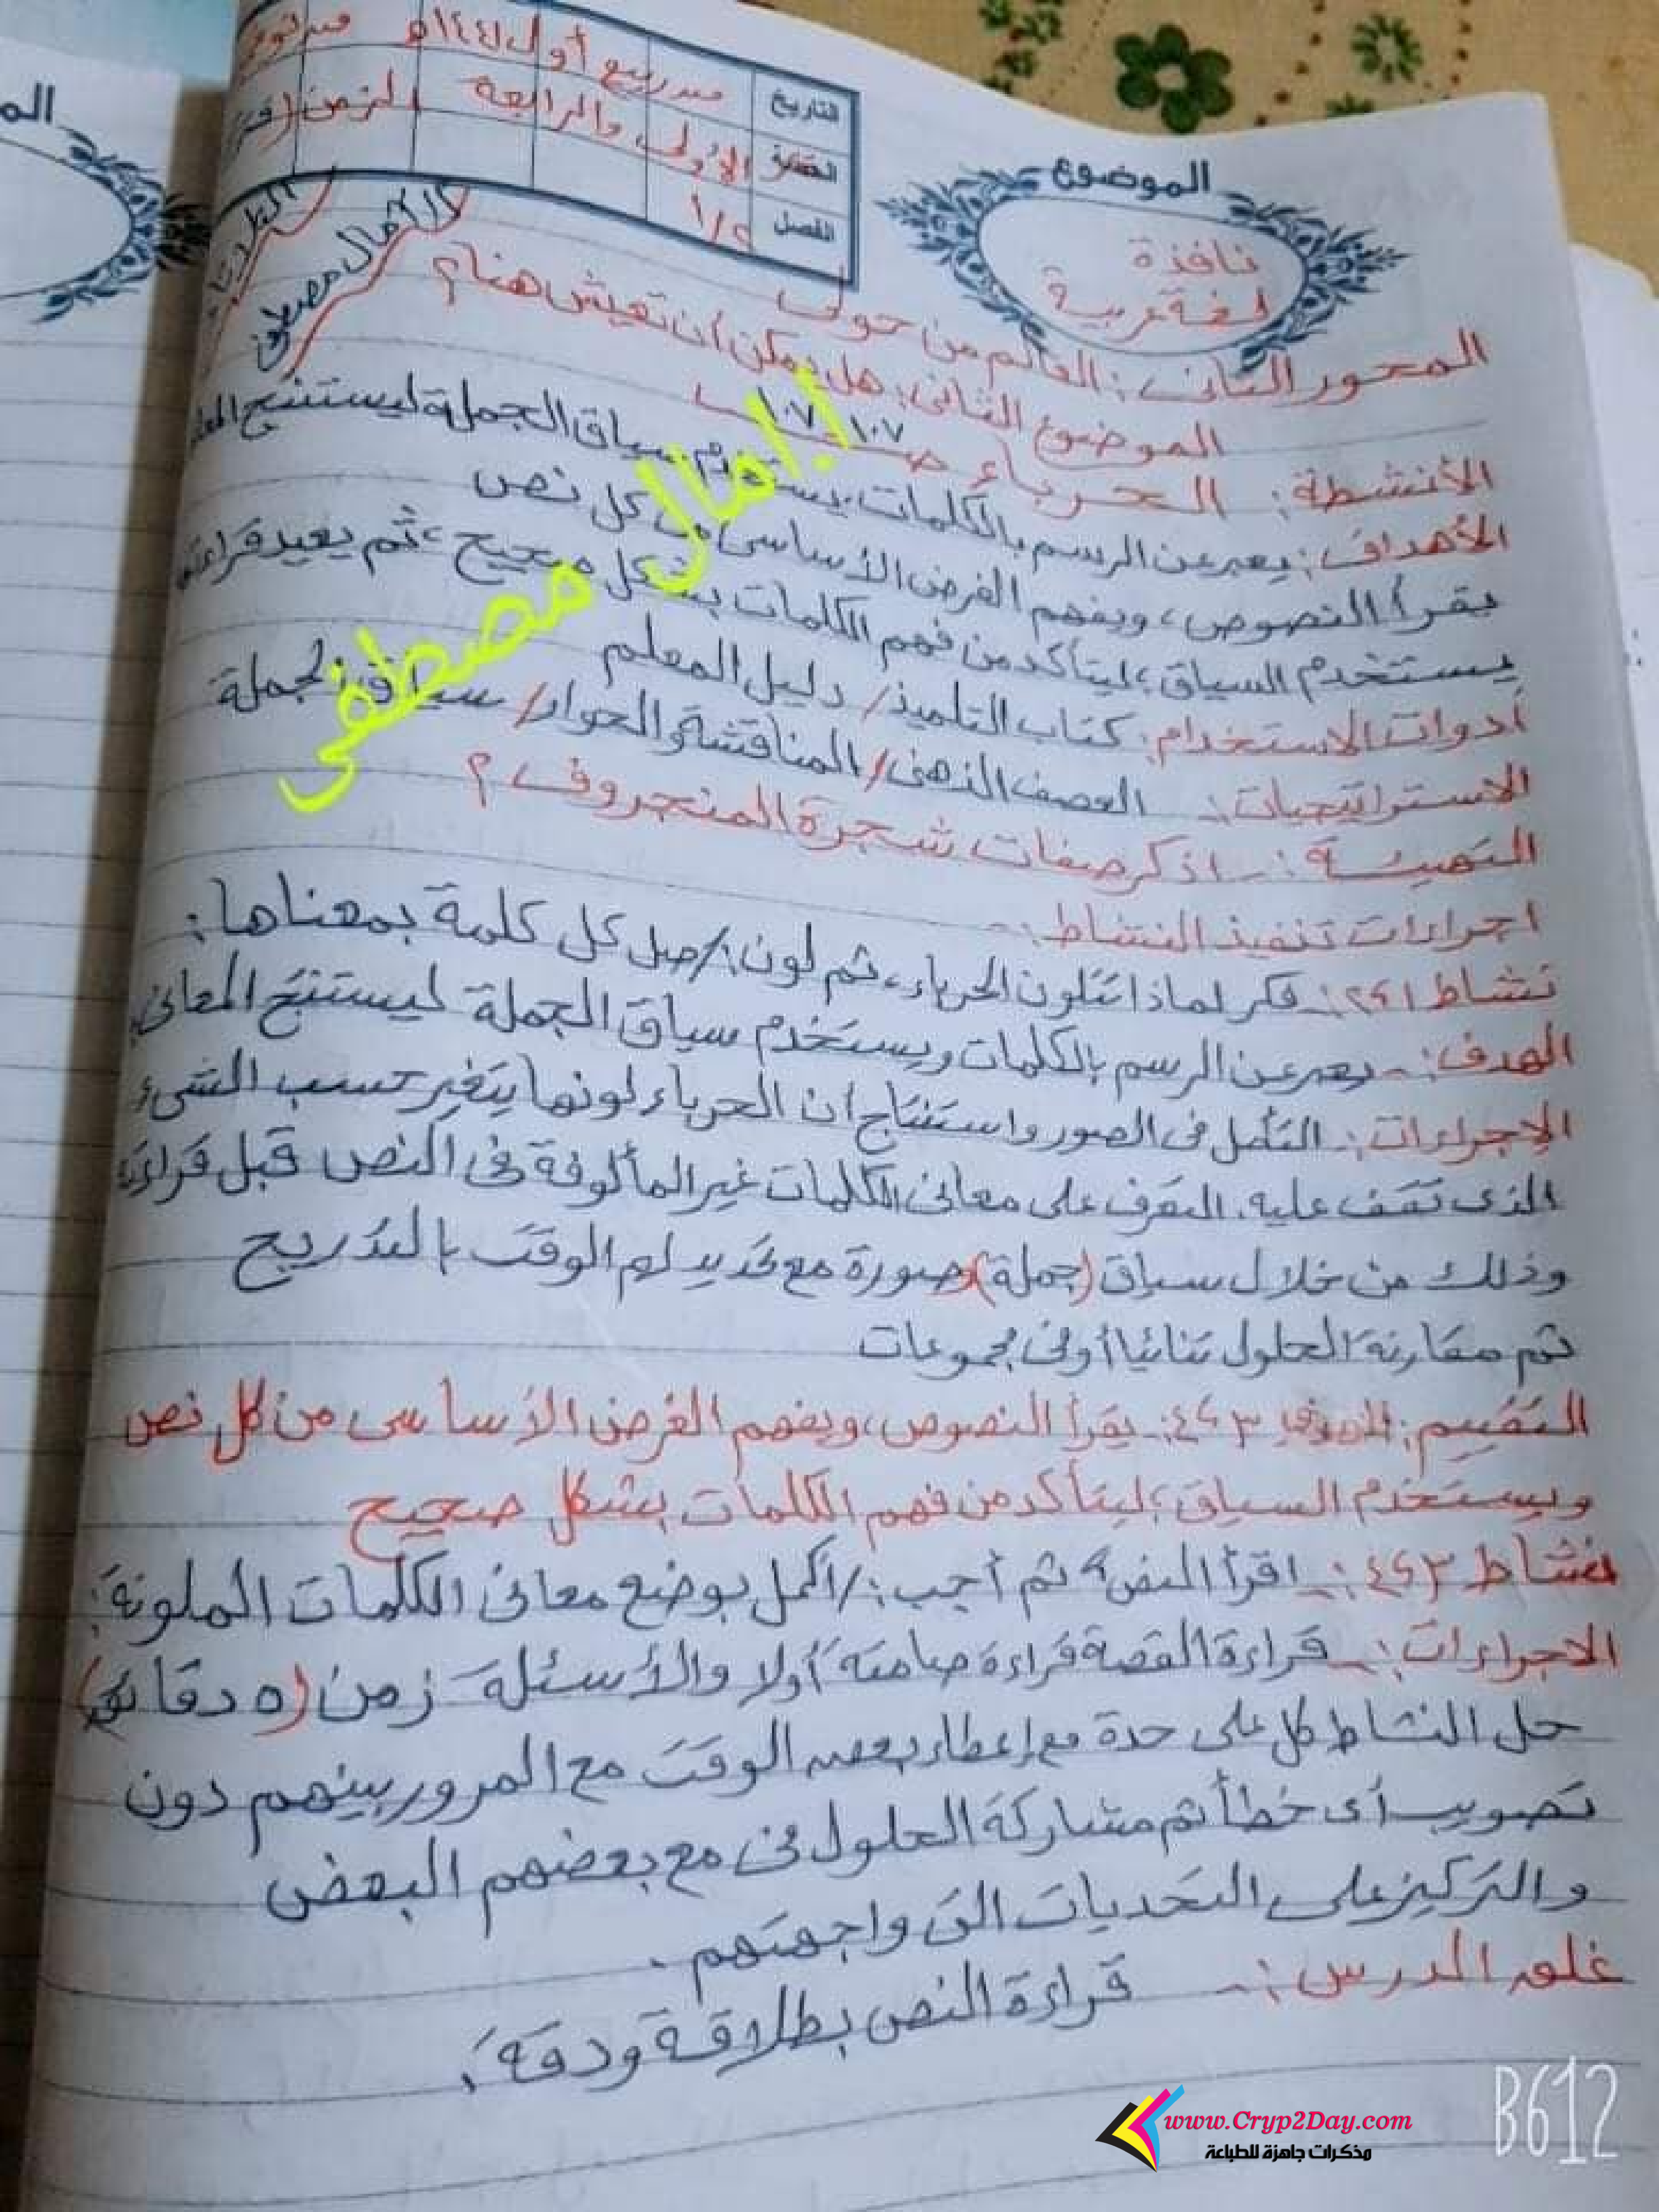 التاريخ من ربيع أول ١٤٤١هـ
الحصة الأولى والرابعة الزمن
الفصل ١/٢
الموضوع
نافذة
لغة عربية
أ/ آمال مصطفى
المحور الثانى: العالم من حولى
الموضوع الثانى: هل يمكن أن تعيش هنا؟
الأنشطة: الحرباء صـ ١٠٧
الأهداف: يعبر عن الرسم بالكلمات، يستخدم سياق الجملة ليستنتج
يقرأ النصوص، ويفهم الغرض الأساسى من كل نص
يستخدم السياق؛ ليتأكد من فهم الكلمات بشكل صحيح، ثم يعيد قراءته
أدوات الاستخدام: كتاب التلميذ/ دليل المعلم
الاستراتيجيات:- العصف الذهنى/ المناقشة والحوار/ سياق الجملة
التهيئة:- اذكر صفات شجرة المنجروف؟
اجراءات تنفيذ النشاط:-
نشاط ١، ٢:- فكر لماذا تتلون الحرباء، ثم لون:/ صل كل كلمة بمعناها:
الهدف:- يعبر عن الرسم بالكلمات ويستخدم سياق الجملة ليستنتج المعانى
الإجراءات: التأمل فى الصور واستنتاج ان الحرباء لونها يتغير حسب الشىء
الذى تقف عليه. التعرف على معانى الكلمات غير المألوفة فى النص قبل قراءته
وذلك من خلال سياق (جملة) وصورة مع تحديد لهم الوقت بالتدريج
ثم مقارنة الحلول ثنائيا أو فى مجموعات
التقييم: ٣، ٤:- يقرأ النصوص، ويفهم الغرض الأساسى من كل نص
ويستخدم السياق؛ ليتأكد من فهم الكلمات بشكل صحيح
نشاط ٣، ٤:- اقرأ النص، ثم أجب:/ أكمل بوضع معانى الكلمات الملونة:
الاجراءات:- قراءة القصة قراءة صامتة أولا والأسئلة زمن (٥ دقائق)
حل النشاط كل على حدة مع إعطاء بعض الوقت مع المرور بينهم دون
تصويب أى خطأ ثم مشاركة الحلول فى مع بعضهم البعض
والتركيز على التحديات التى واجهتهم.
غلق الدرس:- قراءة النص بطلاقة ودقة.
أ/ امال مصطفى
www.Cryp2Day.com
مذكرات جاهزة للطباعة
B612